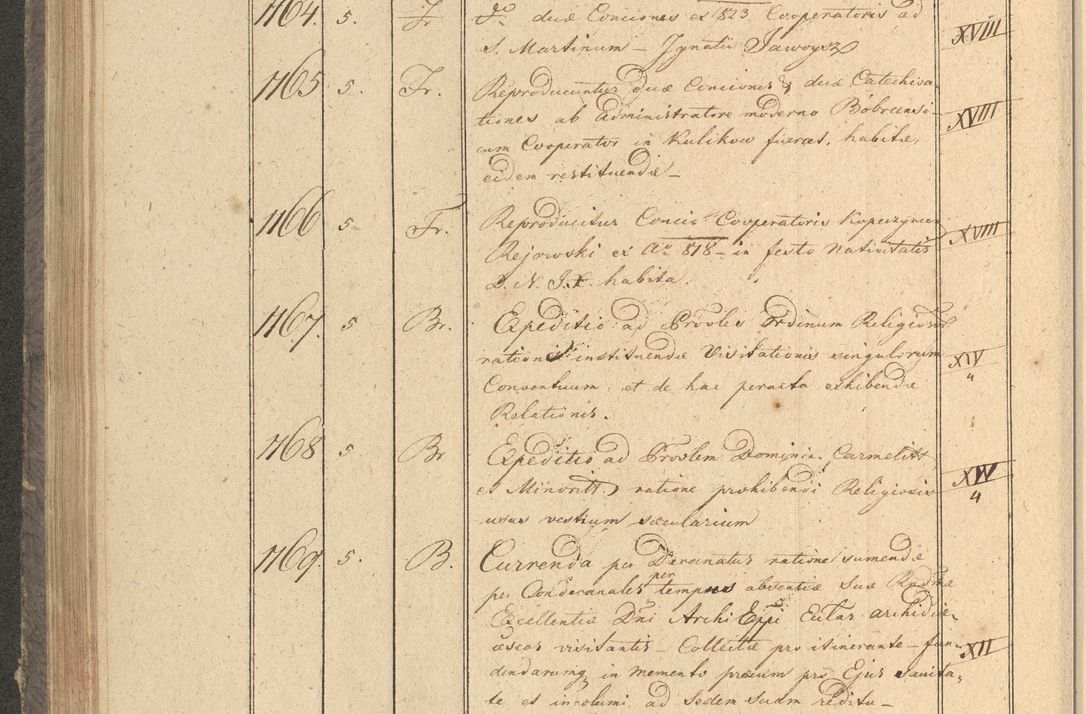 1164. 5. Fr dto duæ Conciones ex 823 Cooperatoris ad
S. Martinum – Ignatii Jaworsz XVIII
1165 5. Fr. Reproducuntur duæ Conciones & duæ Catechisa
tiones ab Administratore moderno Bobrcensi XVIII
cum Cooperator in Kulikow fuerat, habitæ,
eidem restituendæ –
1166 5 Fr. Reproducitur Concio Cooperatoris Kopeczyncen
Rejowski ex Ao 818 – in festo Nativitatis XVIII
D. N. J. X. habita.
1167. 5 Br. Expeditio ad Provles Ordinum Religiosor
ratione instituendæ Visitationis singulorum XIV
Conventuum, et de hac peracta exhibendæ 4
Relationis.
1168 5 Br Expeditio ad Provlem Dominic. Carmelitt
et Minoritt ratione prohibendi Religiosis XIV
usus vestium sæcularium 4
1169. 5. B. Currenda per Decanatus ratione sumendæ
per Condecanales per tempus absentiæ Suæ Rssmæ
Excellentiæ Dni Archi Eppi Eccllas archidiæ-
cæseos visitantis – Collectæ pro itinerante – fun- XII
dendarumq in memento precum pro Ejus sanita-
te et incolumi ad Sedem suam reditu –